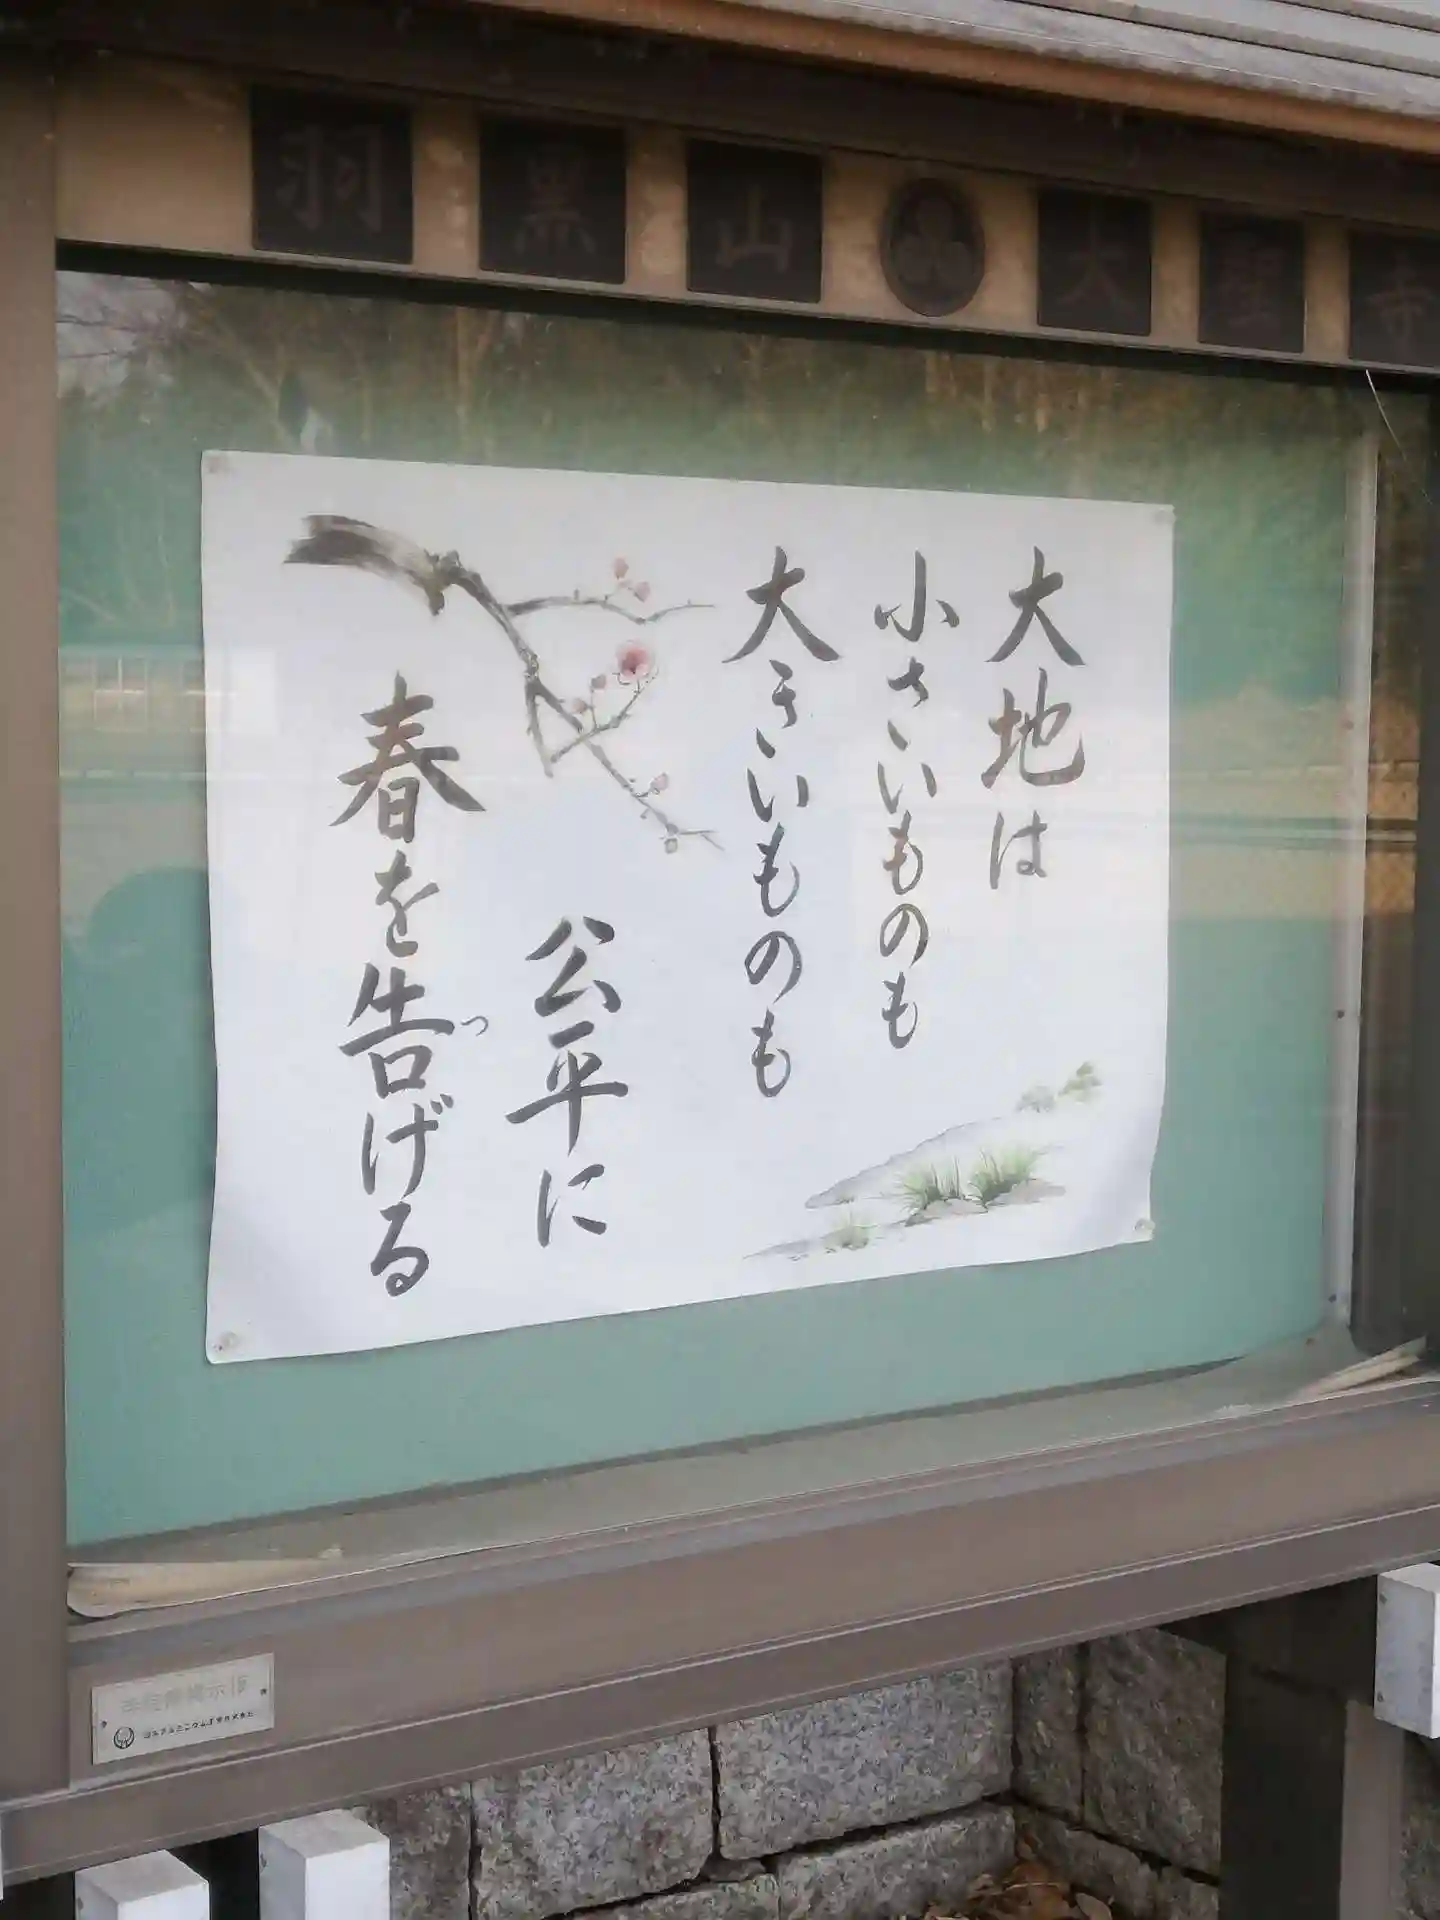 羽黒山 大聖寺
大地は
小さいものも
大きいものも
公平に
春を告げる
つ